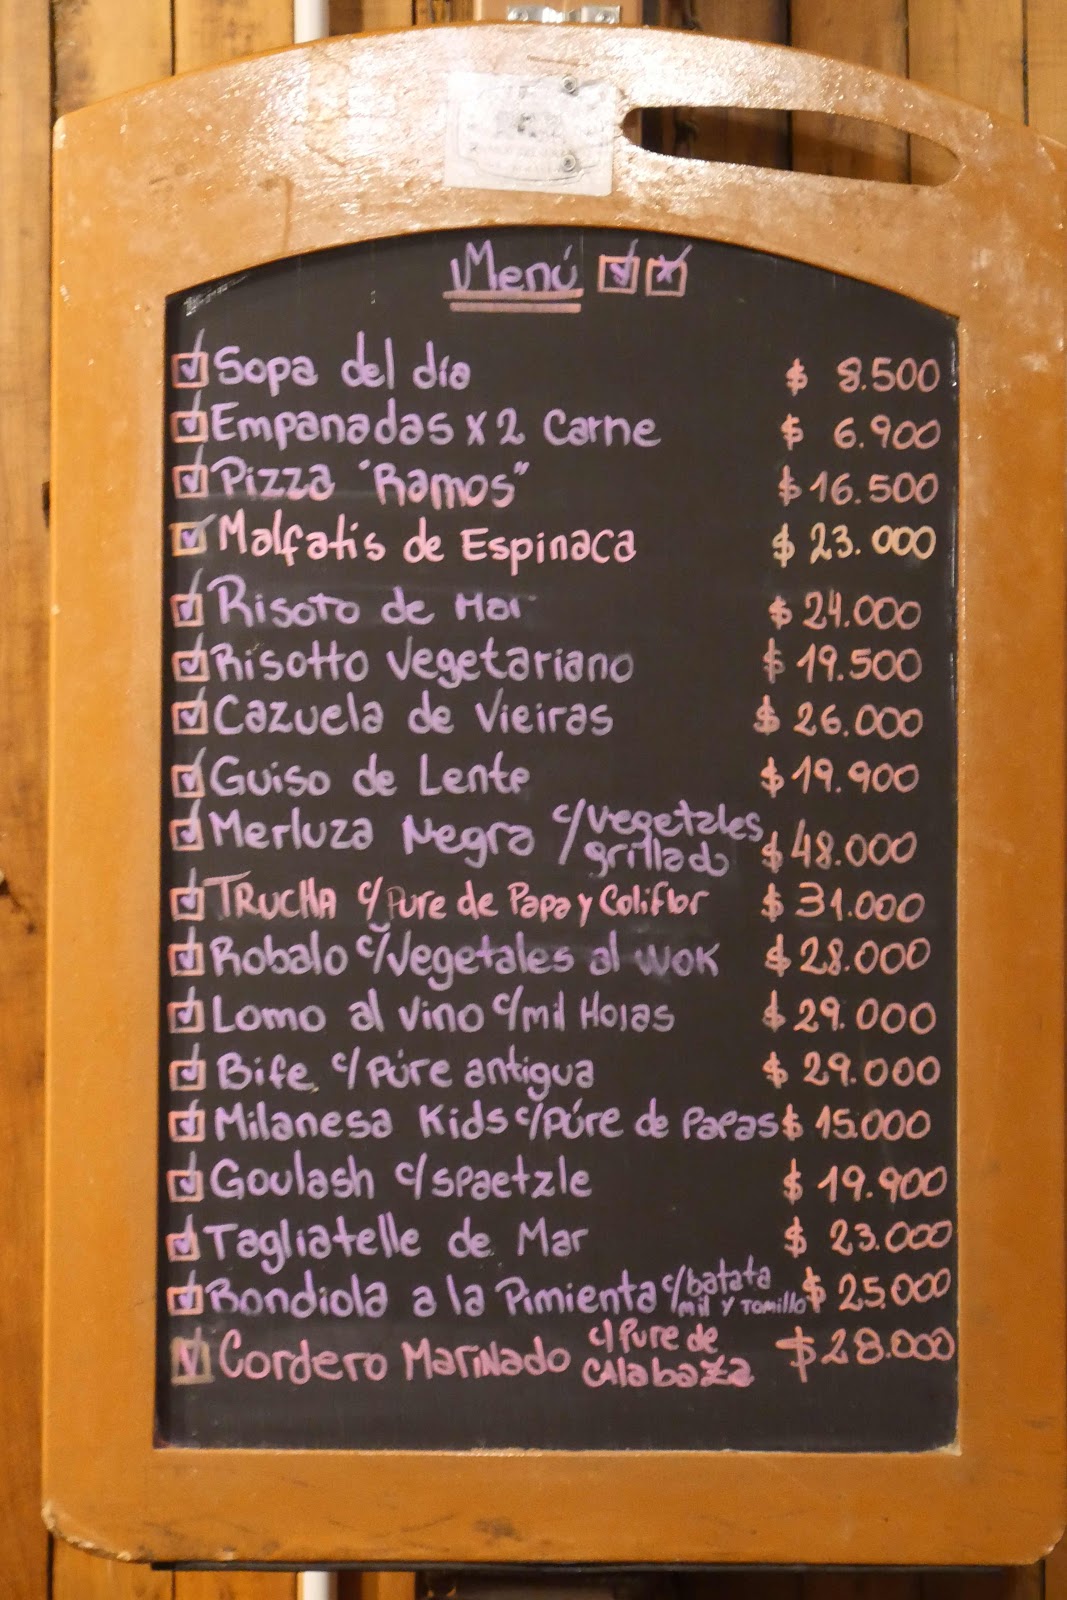 Menú
Sopa del día $ 8.500
Empanadas x 2 Carne $ 6.900
Pizza "Ramos" $ 16.500
Malfatis de Espinaca $ 23.000
Risoto de Mar $ 24.000
Risotto Vegetariano $ 19.500
Cazuela de Vieiras $ 26.000
Guiso de Lente $ 19.900
Merluza Negra c/vegetales grillado $ 48.000
TRUCHA c/Pure de Papa y Coliflor $ 31.000
Robalo c/Vegetales al Wok $ 28.000
Lomo al Vino c/mil Hojas $ 29.000
Bife c/ púre antigua $ 29.000
Milanesa Kids c/púre de papas $ 15.000
Goulash c/spaetzle $ 19.900
Tagliatelle de Mar $ 23.000
Bondiola a la Pimienta c/batata mil y Tomillo $ 25.000
Cordero Marinado c/Pure de CAlabaza $ 28.000